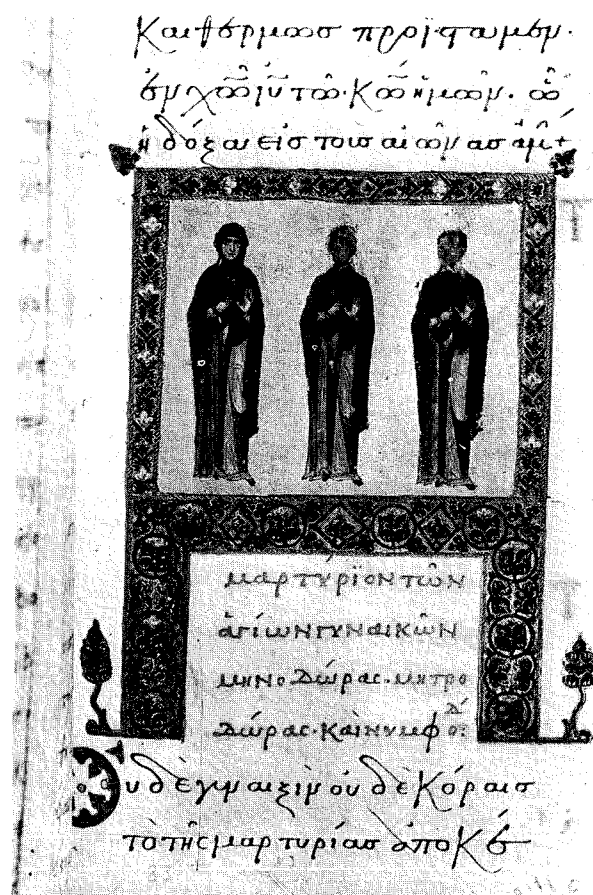 Καὶ θερμῶσ προϊσταμέν·
ἐν χῶ ἰῦ τῶ κῶ ἡμῶν· ὧ
ἡ δόξα εἰσ τοὺσ αἰῶνασ ἀμὴν +
μαρτύριον τῶν
ἁγίων γυναικῶν
μηνοδώρας· μητρο
δώρας· καὶ νυμφοδ΄:
Ουδὲ γυναιξὶν οὐδὲ κόραισ
τὸ τῆς μαρτυρίασ ἀποκέ